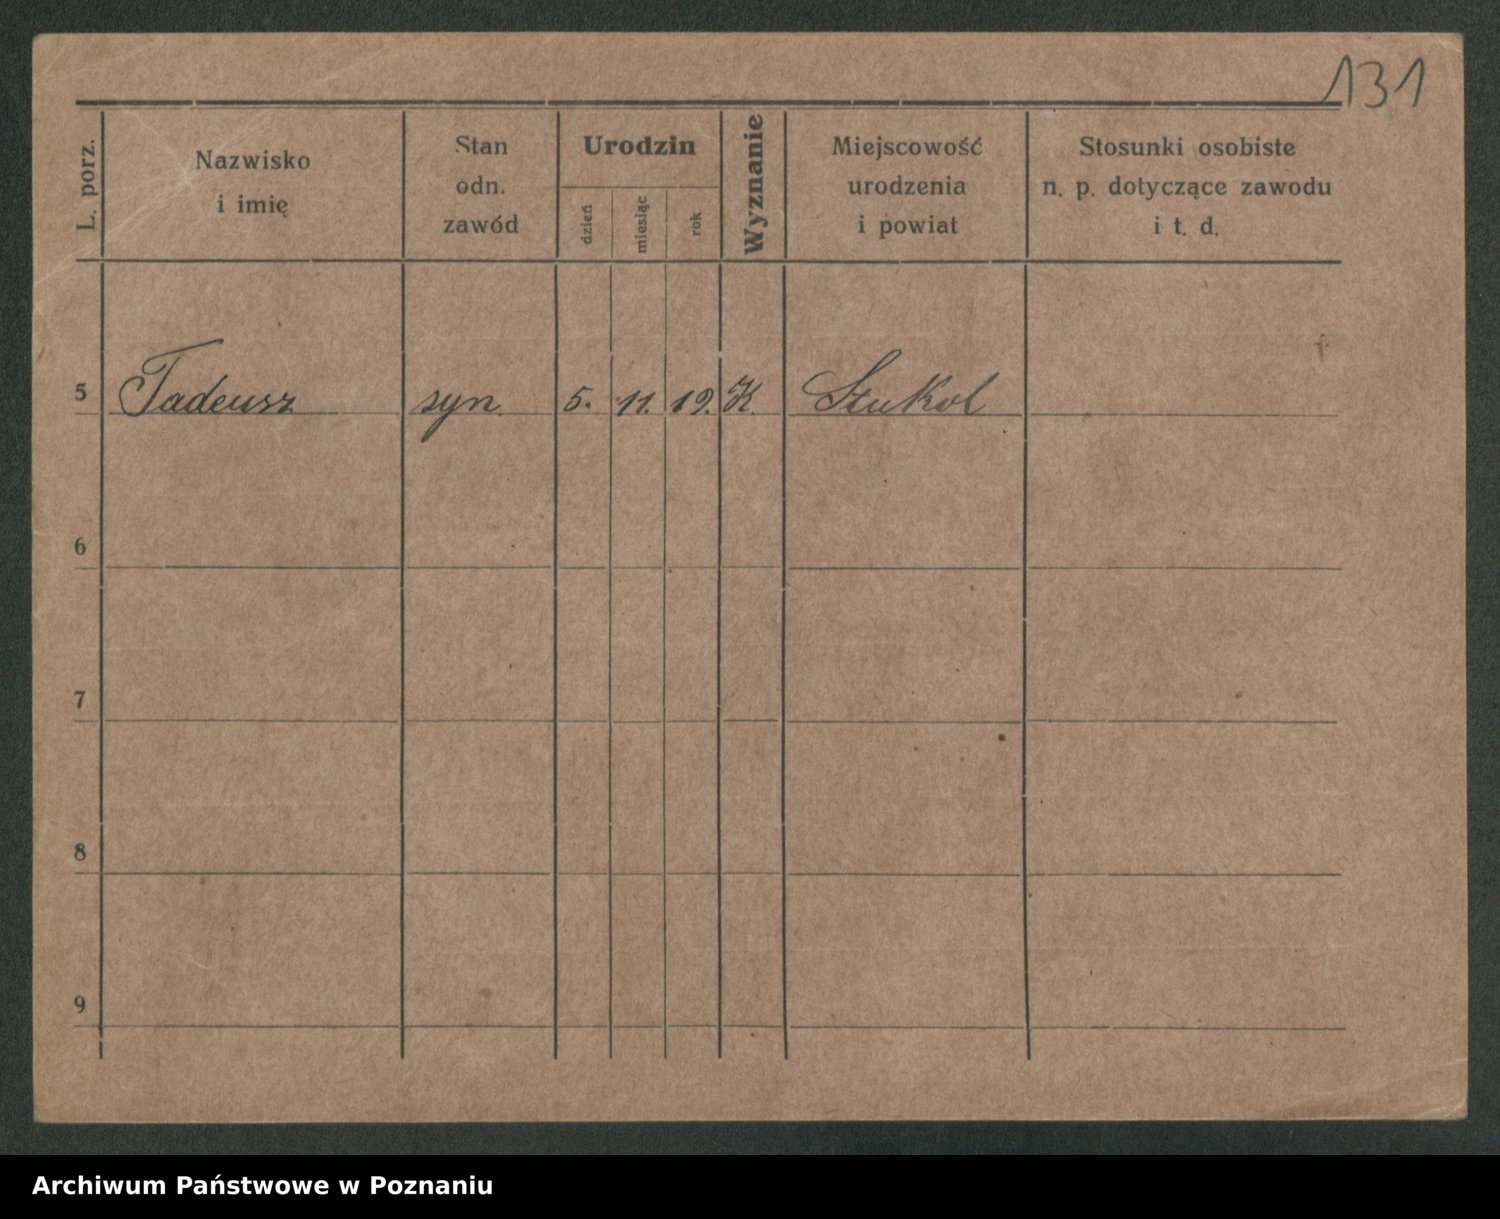 131
L. porz.
Nazwisko
i imię
Stan
odn.
zawód
Urodzin
dzień
miesiąc
rok
Wyznanie
Miejscowość
urodzenia
i powiat
Stosunki osobiste
n. p. dotyczące zawodu
i t. d.
5 Tadeusz syn 5. 11. 19. K. Stukol
6
7
8
9
Archiwum Państwowe w Poznaniu